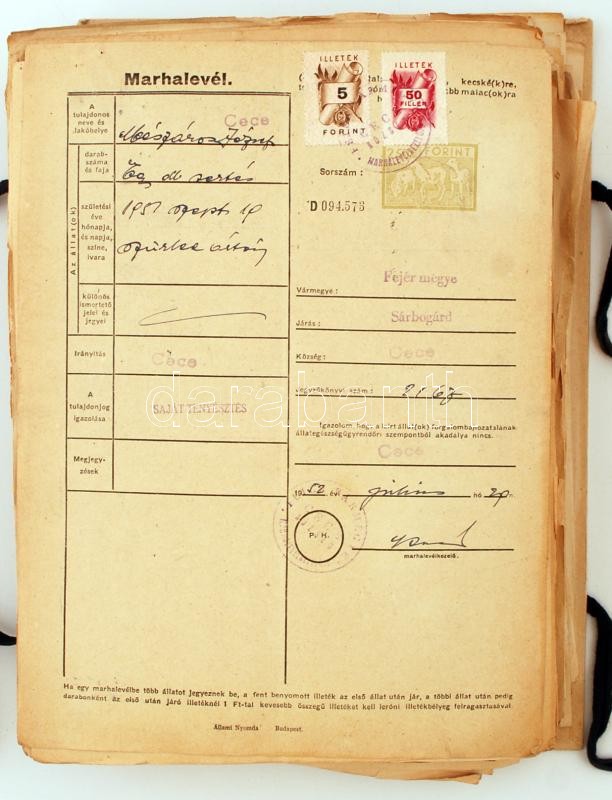 Marhalevél.
A tulajdonos neve és lakóhelye
Cece
Mészáros József
Az állat(ok)
darabszáma és faja
Egy db sertés
születési éve hónapja, és napja, színe, ivara
1951 szept 19
szürke ártány
különös ismertető jelei és jegyei
Irányítás
Cece
A tulajdonjog igazolása
SAJÁT TENYÉSZTÉS
Megjegyzések
ILLETÉK
5
FORINT
ILLETÉK
50
FILLÉR
kecské(k)re,
malac(ok)ra
FORINT
Sorszám :
D 094.573
Fejér megye
Vármegye :
Sárbogárd
Járás :
Cece
Község :
Jegyzőkönyvi szám :
Igazolom, hogy a leírt állat(ok) forgalombahozatalának
állategészségügyrendőri szempontból akadálya nincs.
Cece
1952 évi július hó 29n.
P. H.
marhalevélkezelő.
Ha egy marhalevélbe több állatot jegyeznek be, a fent benyomott illeték az első állat után jár, a többi állat után pedig
darabonként az első után járó illetéknél 1 Ft-tal kevesebb összegű illetéket kell leróni illetékbélyeg felragasztásával.
Állami Nyomda Budapest.
darabanth